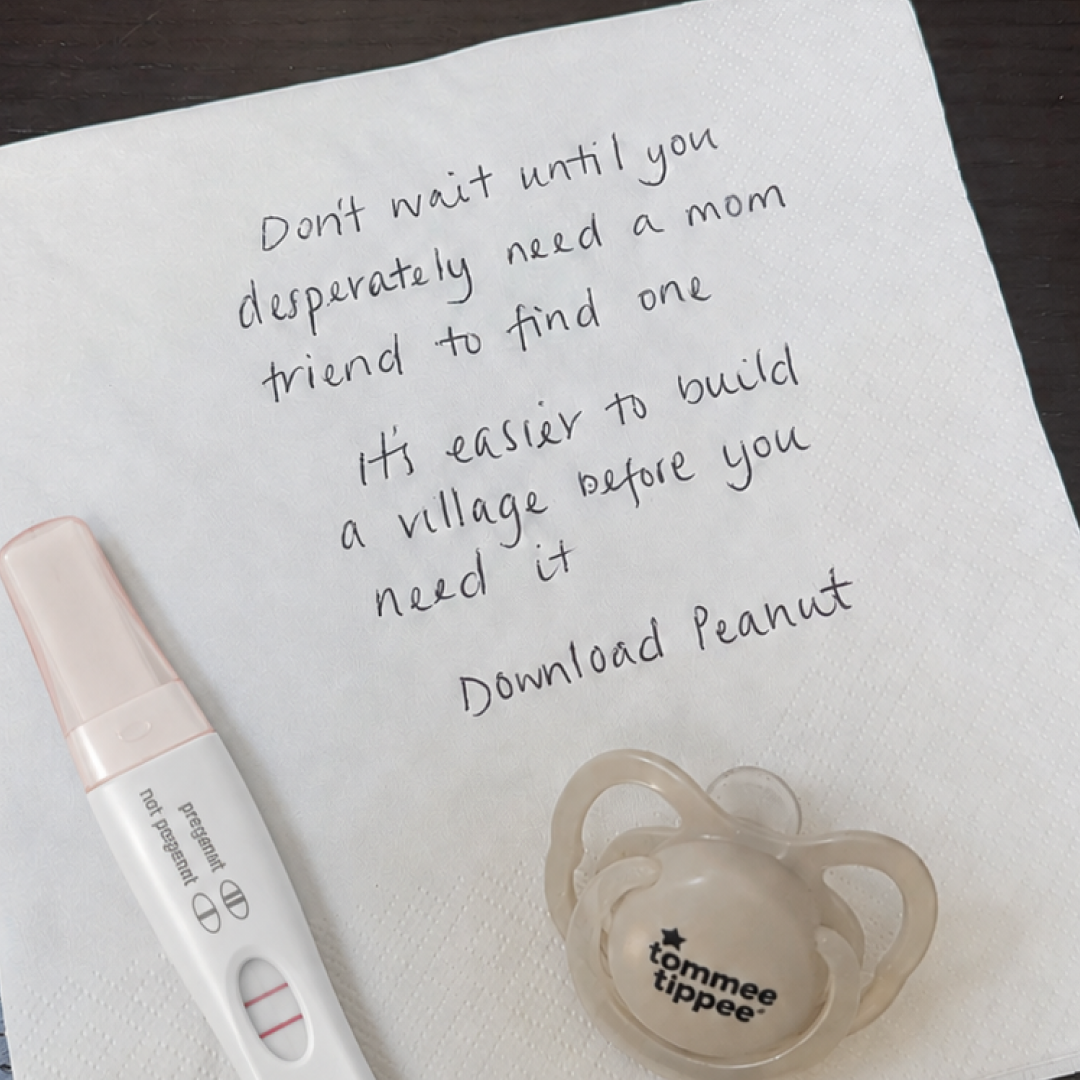 Don't wait until you
desperately need a mom
friend to find one
It's easier to build
a village before you
need it
Download Peanut
pregenant
not pregenat
tommee
tippee